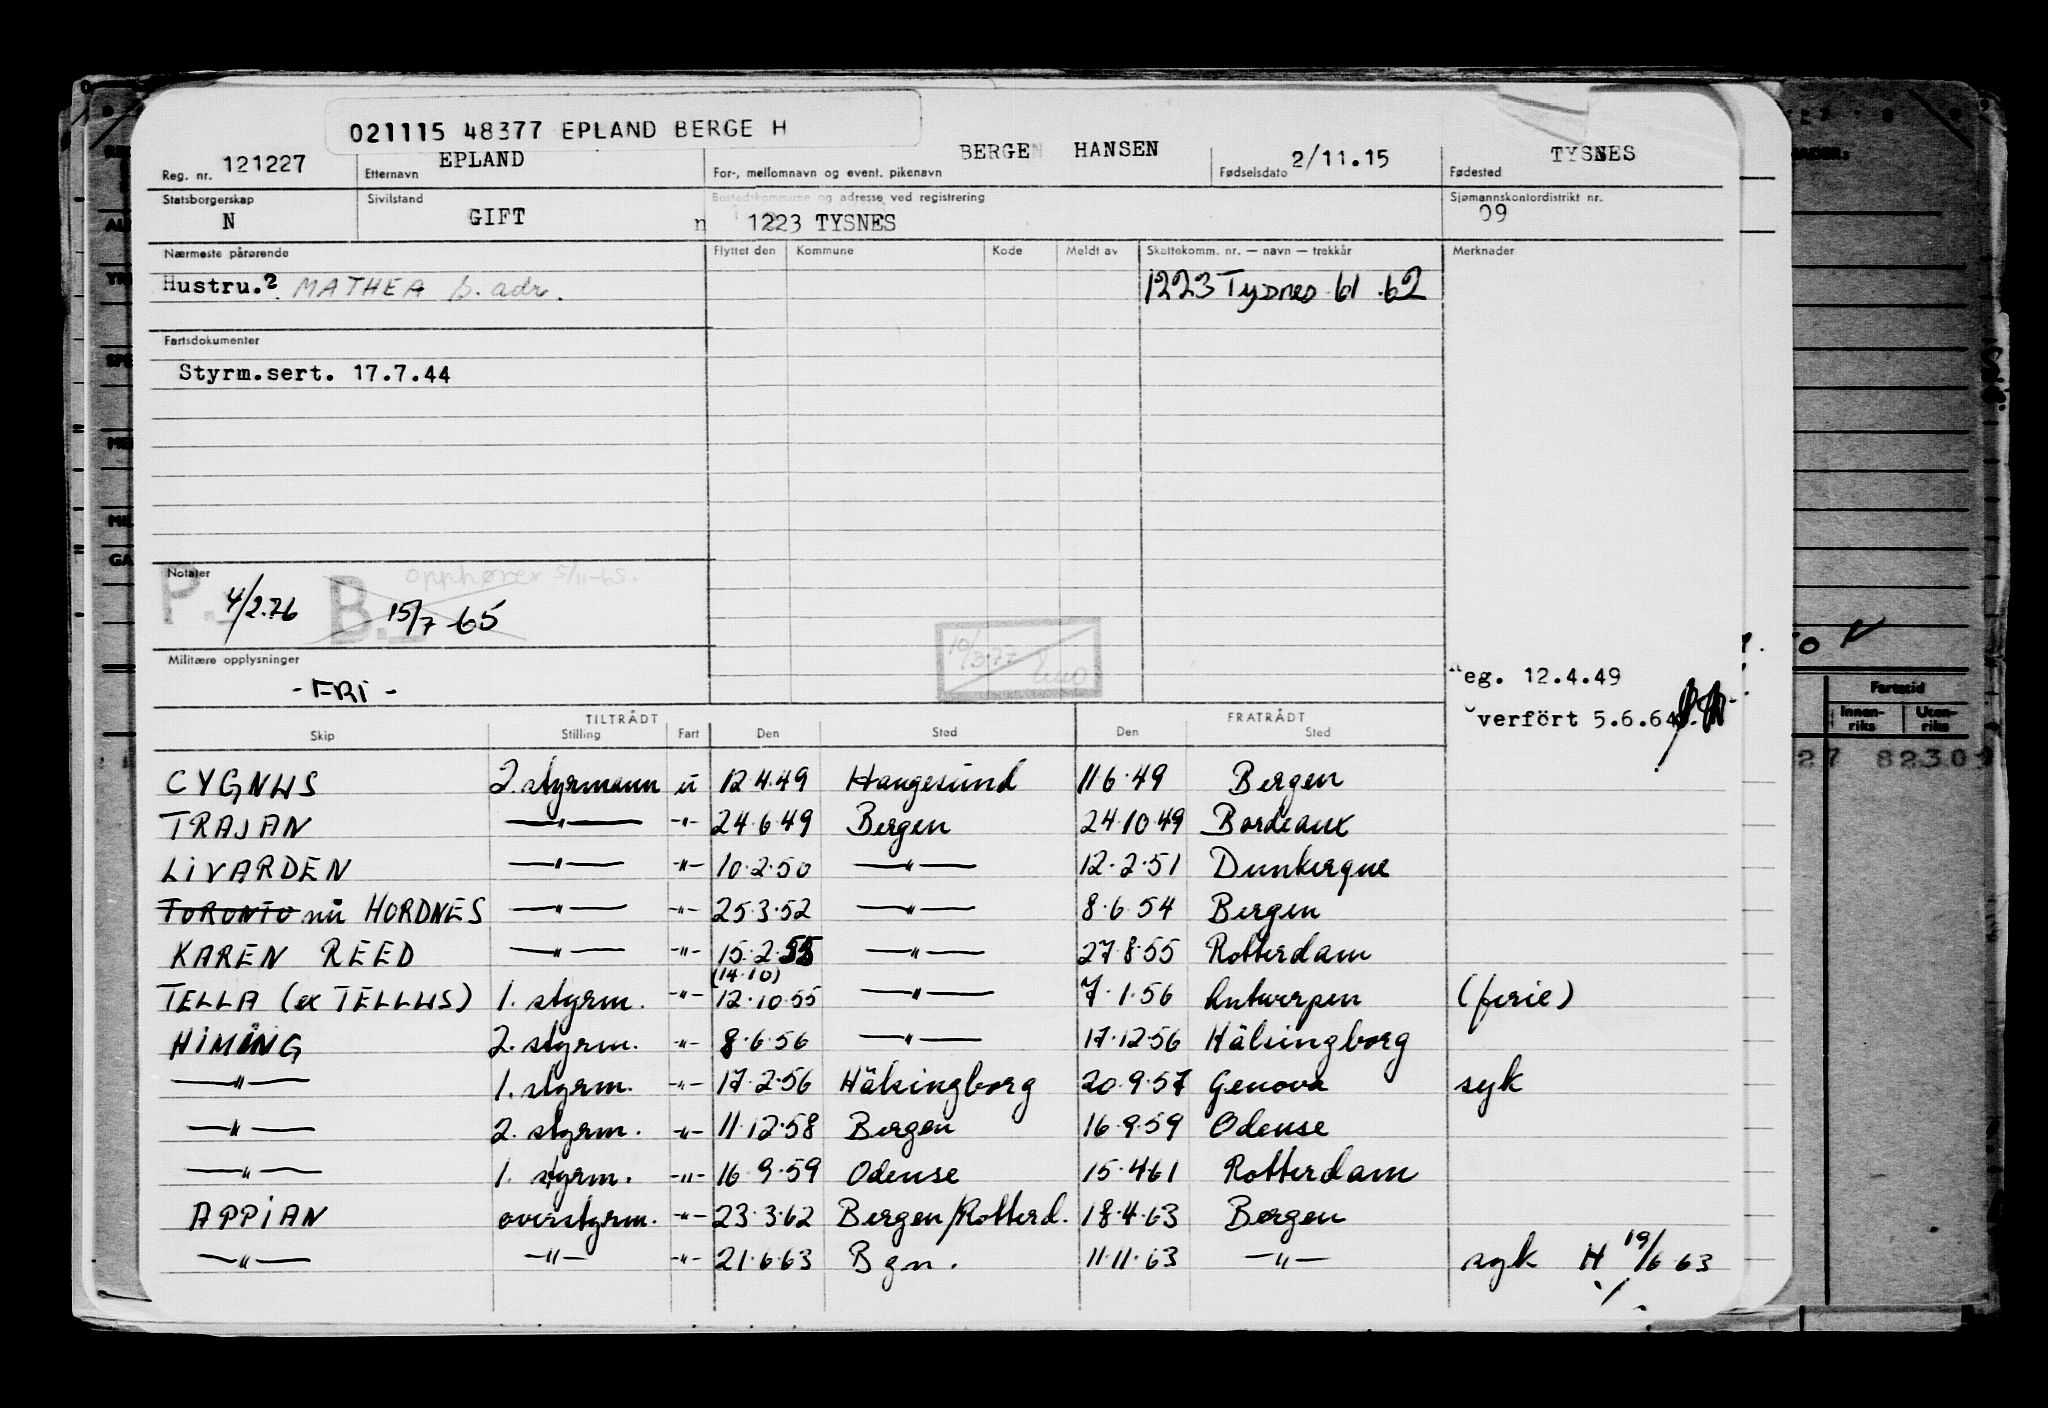 021115 48377 EPLAND BERGE H
Reg. nr. 121227 Etternavn EPLAND For-, mellomnavn og event. pikenavn BERGEN HANSEN Fødselsdato 2/11.15 Fødested TYSNES
Statsborgerskap N Sivilstand GIFT Bostedskommune og adresse ved registrering n 1223 TYSNES Sjømannskontordistrikt nr. 09
Nærmeste pårørende Flyttet den Kommune Kode Meldt av Skattekomm. nr. — navn — trekkår Merknader
Hustru.? MATHEA s. adr. 1223 Tysnes 61 .62
Fartsdokumenter
Styrm.sert. 17.7.44
Notater opphører 5/11-65.
P. 4/2.76 B. 15/7 65
10/3.77
Militære opplysninger
- FRI -
eg. 12.4.49
verfört 5.6.64
TILTRÅDT FRATRÅDT
Skip Stilling Fart Den Sted Den Sted
CYGNUS 2. styrmann u 12.4.49 Haugesund 11.6.49 Bergen
TRAJAN —"— -"- 24.6.49 Bergen 24.10.49 Bordeaux
LIVARDEN —"— -"- 10.2.50 —"— 12.2.51 Dunkerque
TORONTO nå HORDNES —"— -"- 25.3.52 —"— 8.6.54 Bergen
KAREN REED —"— -"- 15.2.55 —"— 27.8.55 Rotterdam
(14.10)
TELLA (ex TELLUS) 1. styrm. -"- 12.10.55 —"— 7.1.56 Antwerpen (ferie)
HIMING 2. styrm. -"- 8.6.56 —"— 17.12.56 Hälsingborg
—"— 1. styrm. -"- 17.2.56 Hälsingborg 20.9.57 Genova syk
—"— 2. styrm. -"- 11.12.58 Bergen 16.9.59 Odense
—"— 1. styrm. -"- 16.9.59 Odense 15.4.61 Rotterdam
APPIAN overstyrm. -"- 23.3.62 Bergen/Rotterd. 18.4.63 Bergen
—"— —"— -"- 21.6.63 Bgn. 11.11.63 —"— syk H 19/6 63
Fartstid
Innen-riks Uten-riks
27 82309